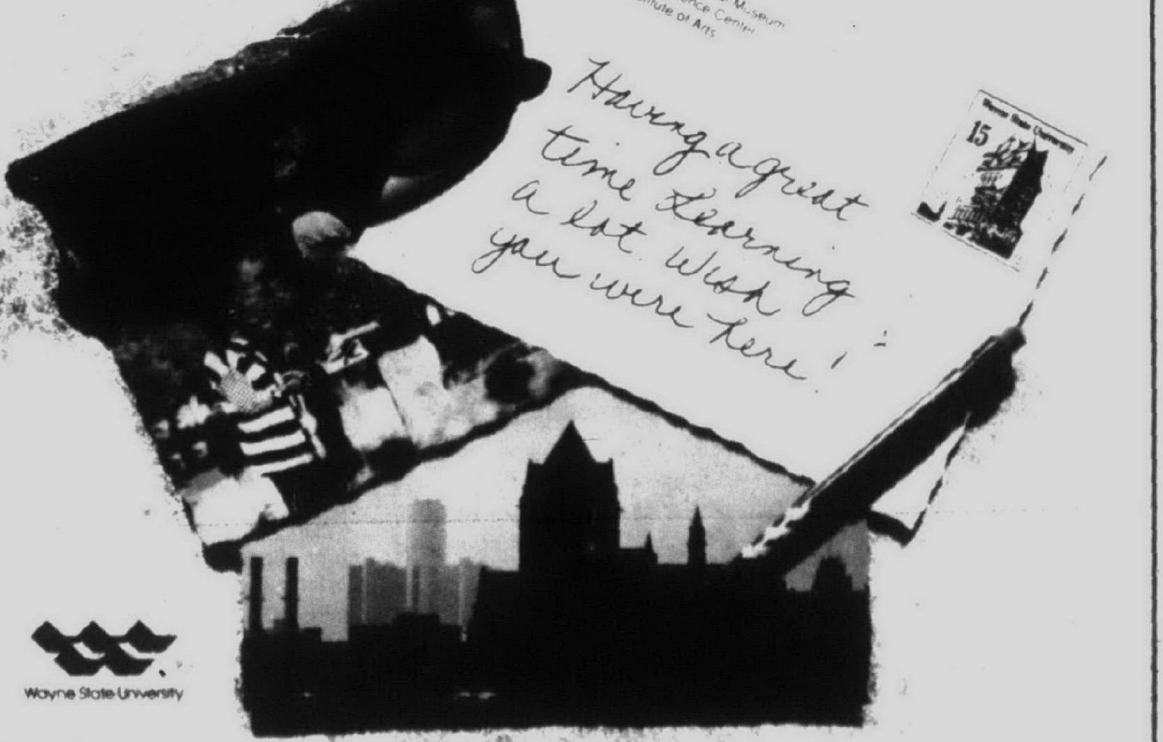 Museum
Center
Institute of Arts
Having a great
time Learning
a lot. Wish
you were here!
Wayne State University
15
Wayne State University